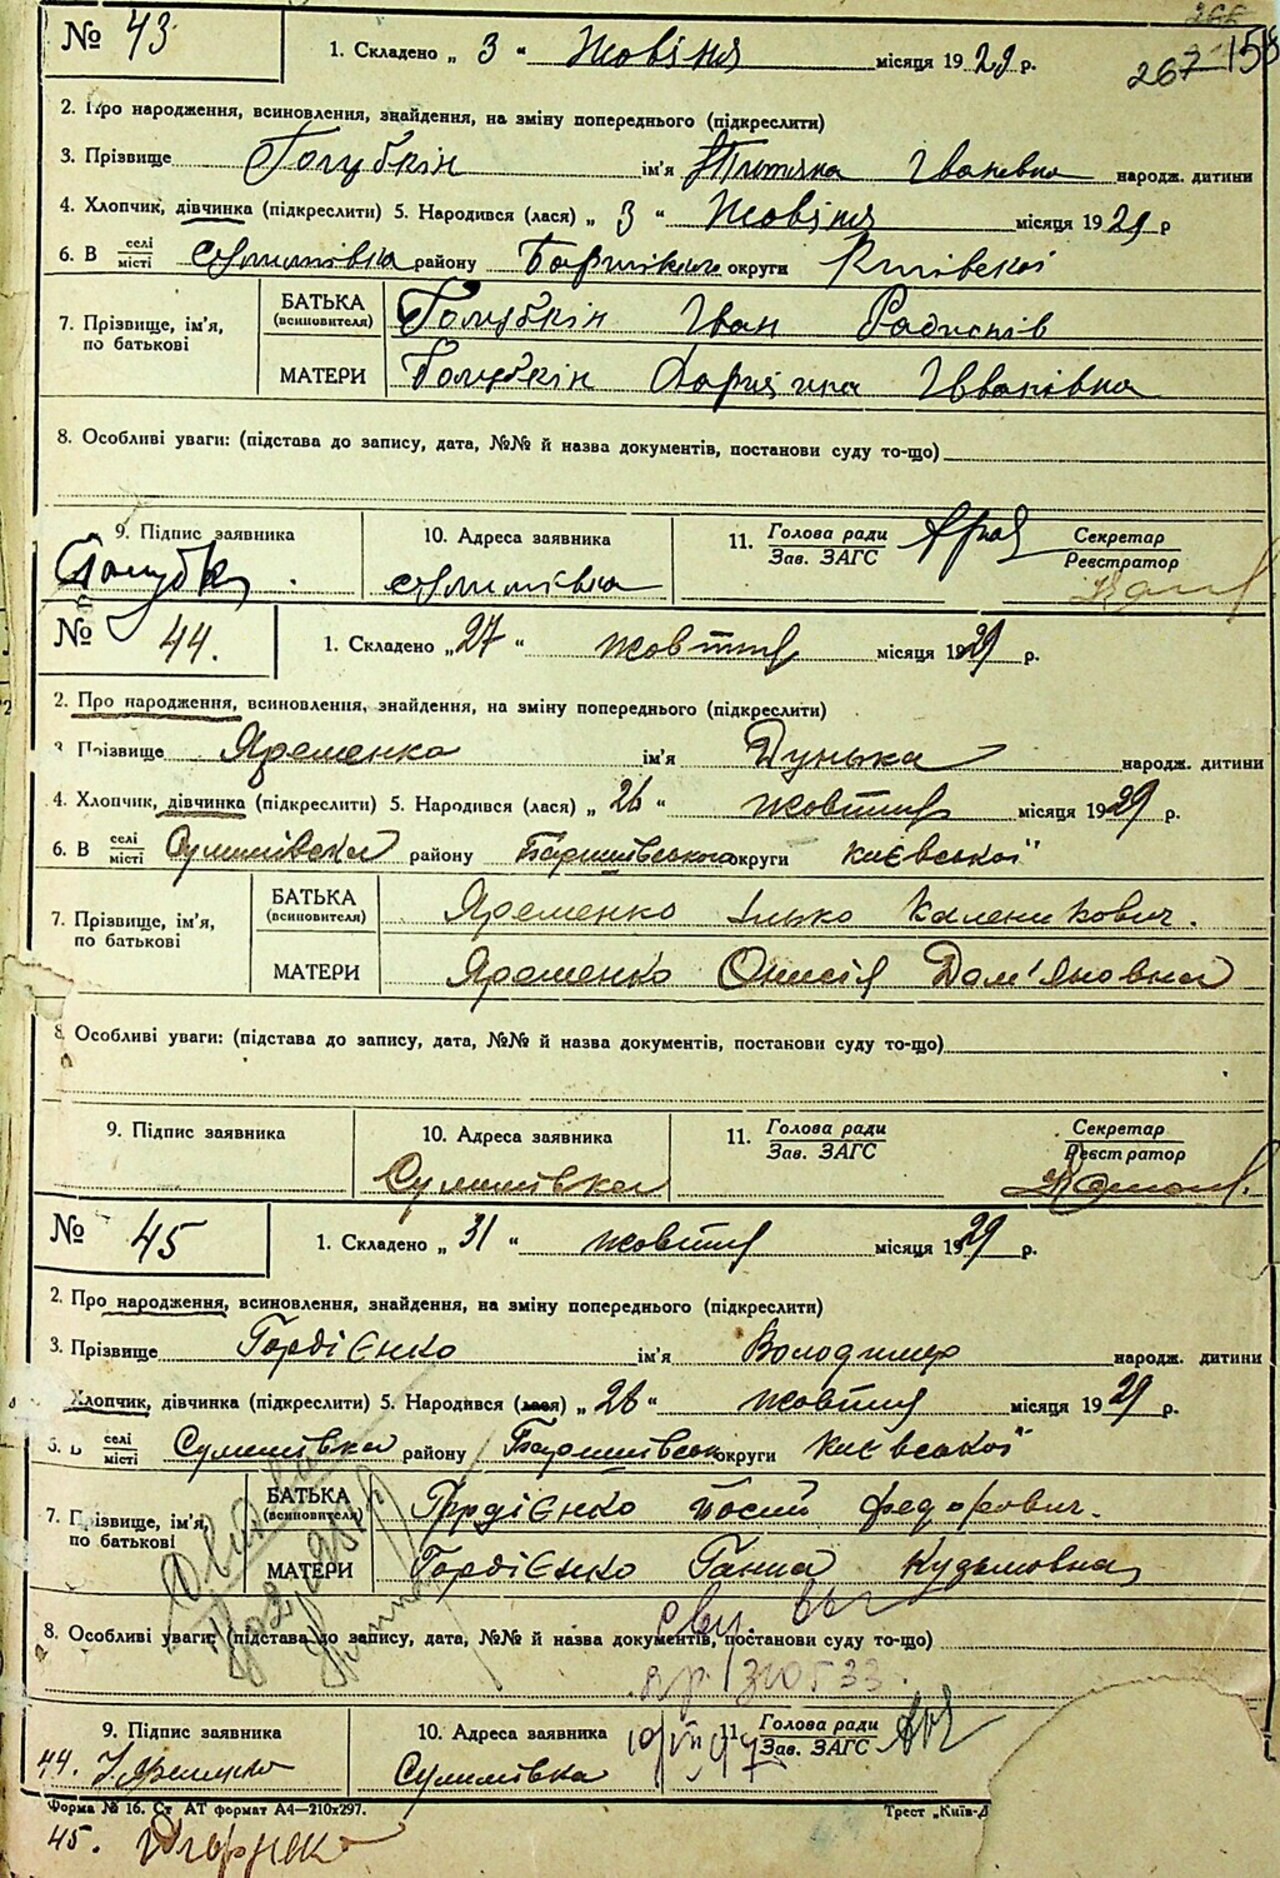 267 158
№ 43 1. Складено „ 3 “ Жовтня місяця 1929 р.
2. Про народження, всиновлення, знайдення, на зміну попереднього (підкреслити)
3. Прізвище Голубкін ім'я Івановна народж. дитини
4. Хлопчик, дівчинка (підкреслити) 5. Народився (лася) „ 3 “ Жовтня місяця 1929 р
6. В селі/місті Сулимівка району округи Київської
7. Прізвище, ім'я, по батькові
БАТЬКА (всиновителя) Голубкін Іван
МАТЕРИ Голубкін Івановна
8. Особливі уваги: (підстава до запису, дата, №№ й назва документів, постанови суду то-що)
9. Підпис заявника 10. Адреса заявника 11. Голова ради / Зав. ЗАГС Секретар / Реєстратор
Сулимівка
№ 44. 1. Складено „27 “ жовтня місяця 1929 р.
2. Про народження, всиновлення, знайдення, на зміну попереднього (підкреслити)
3 Прізвище Яременко ім'я Дунька народж. дитини
4. Хлопчик, дівчинка (підкреслити) 5. Народився (лася) „ 26 “ жовтня місяця 1929 р.
6. В селі/місті Сулимівка району Баришівського округи Києвської
7. Прізвище, ім'я, по батькові
БАТЬКА (всиновителя) Яременко Ілько Каленикович.
МАТЕРИ Яременко Онисія Дом'яновна
8 Особливі уваги: (підстава до запису, дата, №№ й назва документів, постанови суду то-що)
9. Підпис заявника 10. Адреса заявника 11. Голова ради / Зав. ЗАГС Секретар / Реєстратор
Сулимівка
№ 45 1. Складено „ 31 “ жовтня місяця 1929 р.
2. Про народження, всиновлення, знайдення, на зміну попереднього (підкреслити)
3. Прізвище Гордієнко ім'я Володимир народж. дитини
Хлопчик, дівчинка (підкреслити) 5. Народився (лася) „ 28 “ жовтня місяця 1929 р.
6. В селі/місті Сулимівка району Баришівськ округи Києвської
7. Прізвище, ім'я, по батькові
БАТЬКА (всиновителя) Гордієнко Йосип Федорович.
МАТЕРИ Гордієнко Ганна Кузьмовна
8. Особливі уваги: (підстава до запису, дата, №№ й назва документів, постанови суду то-що)
310533
9. Підпис заявника 10. Адреса заявника 11. Голова ради / Зав. ЗАГС
44. Сулимівка
Форма № 16. Ст АТ формат А4—210х297. Трест „Київ-Д
45.